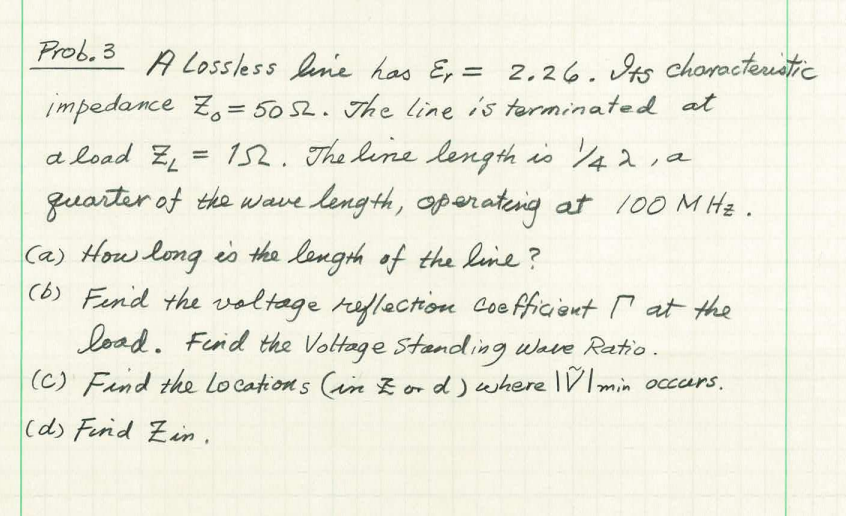 Prob. 3 A Lossless line has εr = 2.26. Its characteristic
impedance Z₀ = 50 Ω. The line is terminated at
a load Z_L = 1Ω. The line length is 1/4 λ, a
quarter of the wave length, operating at 100 MHz.
(a) How long is the length of the line?
(b) Find the voltage reflection coefficient Γ at the
load. Find the Voltage Standing Wave Ratio.
(c) Find the locations (in z or d) where |Ṽ|min occurs.
(d) Find Zin.